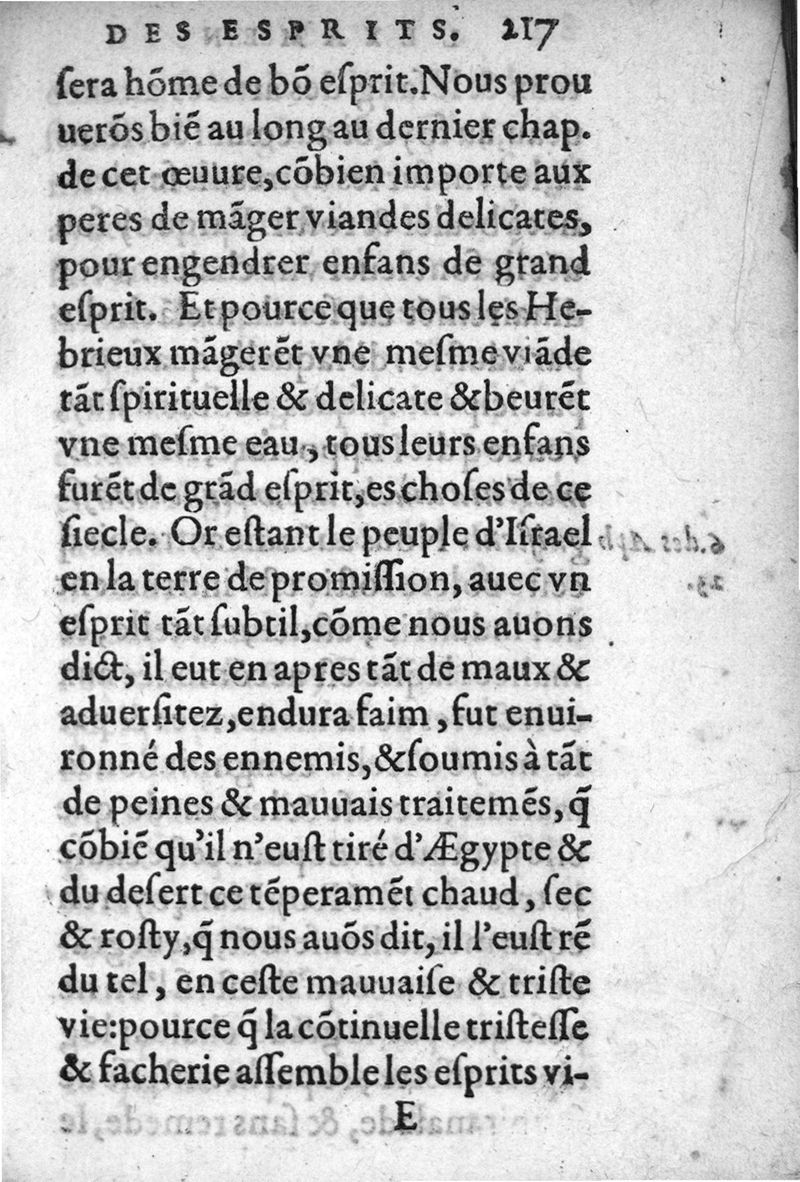 DES ESPRITS. 217
ſera hõme de bõ eſprit. Nous prou
uerõs biẽ au long au dernier chap.
de cet œuure, cõbien importe aux
peres de mãger viandes delicates,
pour engendrer enfans de grand
eſprit. Et pource que tous les He-
brieux mãgerẽt vne meſme viãde
tãt ſpirituelle & delicate & beurẽt
vne meſme eau, tous leurs enfans
furẽt de grãd eſprit, es choſes de ce
ſiecle. Or eſtant le peuple d'Iſrael
en la terre de promiſſion, auec vn
eſprit tãt ſubtil, cõme nous auons
dict, il eut en apres tãt de maux &
aduerſitez, endura faim, fut enui-
ronné des ennemis, & ſoumis à tãt
de peines & mauuais traitemẽs, q̃
cõbiẽ qu'il n'euſt tiré d'Ægypte &
du deſert ce tẽperamẽt chaud, ſec
& roſty, q̃ nous auõs dit, il l'euſt rẽ
du tel, en ceſte mauuaiſe & triſte
vie: pource q̃ la cõtinuelle triſteſſe
& facherie aſſemble les eſprits vi-
E